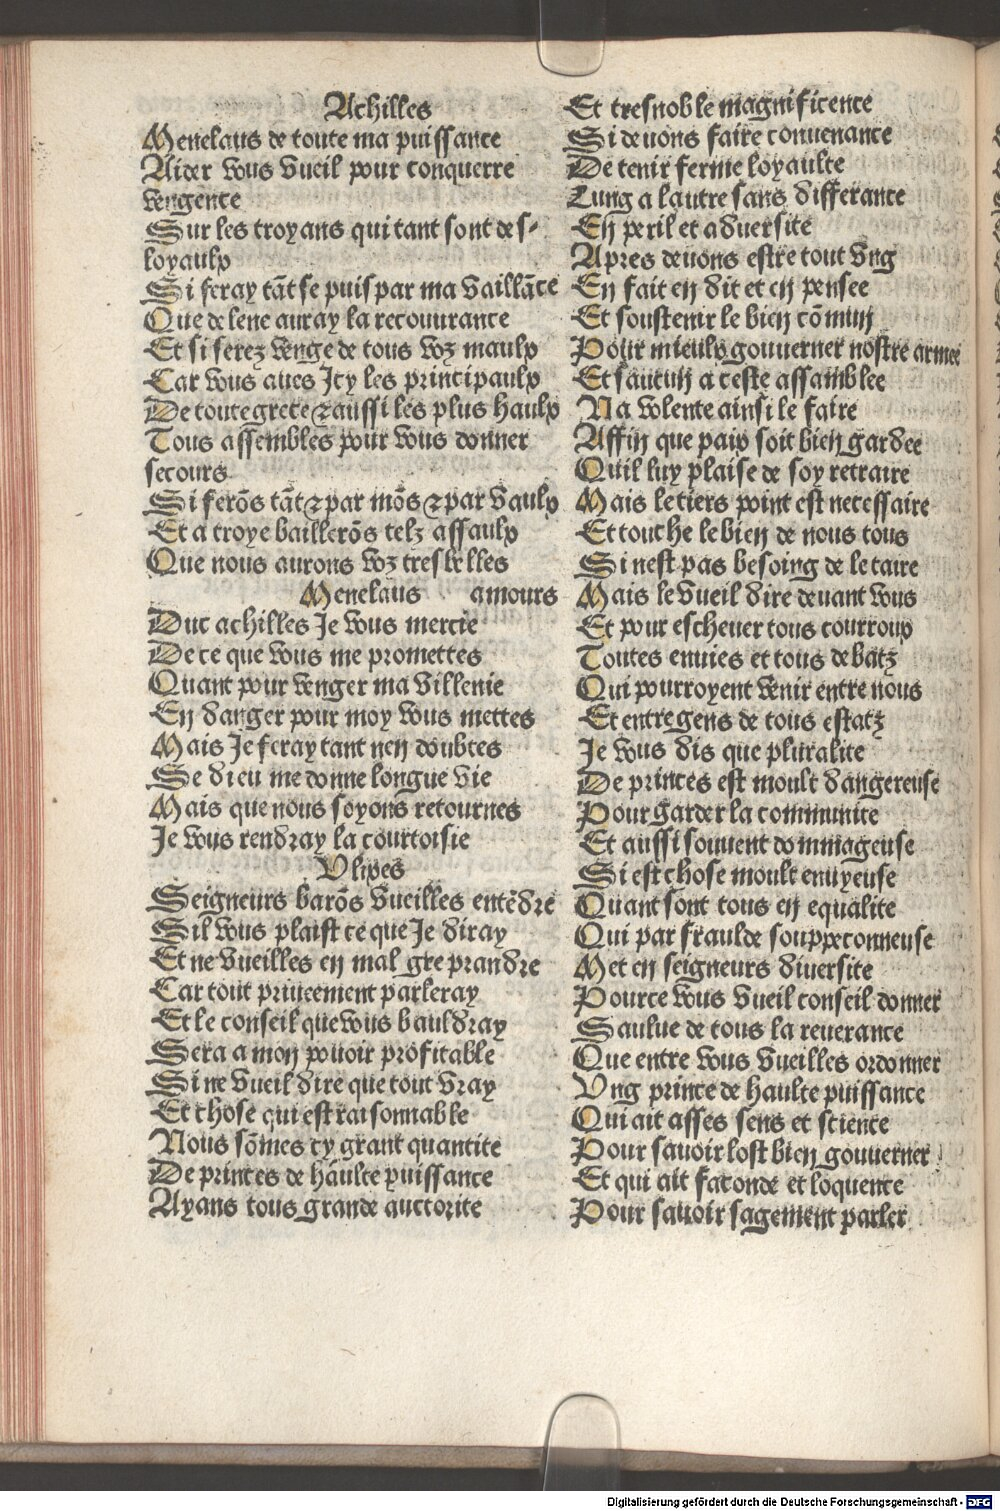 Achilles
Menelaus de toute ma puissance
Aider vous vueil pour conquerre
vengence
Sur les troyans qui tant sont des-
loyaulx
Si feray tãt se puis par ma vaillãce
Que delene auray la recouurance
Et si serez venge de tous voz maulx
Car vous aues Icy les principaulx
De toute grece ⁊ aussi les plus haulx
Tous assembles pour vous donner
secours
Si ferõs tãt ⁊ par mõs ⁊ par vaulx
Et a troye baillerõs telz assaulx
Que nous aurons voz tresbelles
Menelaus amours
Duc achilles Je vous mercie
De ce que vous me promettes
Quant pour venger ma villenie
En danger pour moy vous mettes
Mais Je feray tant nen doubtes
Se dieu me donne longue vie
Mais que nous soyons retournes
Je vous rendray la courtoisie
Vlixes
Seigneurs barõs vueilles entẽdre
Sil vous plaist ce que Je diray
Et ne vueilles en mal gre prandre
Car tout priueement parleray
Et le conseil que vous bauldray
Sera a mon pouoir profitable
Si ne vueil dire que tout vray
Et chose qui est raisonnable
Nous sõmes cy grant quantite
De princes de haulte puissance
Ayans tous grande auctorite
Et tresnoble magnificence
Si deuons faire conuenance
De tenir ferme loyaulte
Lung a lautre sans differance
En peril et aduersite
Apres deuons estre tout vng
En fait en dit et en pensee
Et soustenir le bien cõmun
Pour mieulx gouuerner nostre armee
Et saucun a ceste assamblee
Na volente ainsi le faire
Affin que paix soit bien gardee
Quil luy plaise de soy retraire
Mais le tiers point est necessaire
Et touche le bien de nous tous
Si nest pas besoing de le taire
Mais le vueil dire deuant vous
Et pour escheuer tous courroux
Toutes enuies et tous debatz
Qui pourroyent venir entre nous
Et entre gens de tous estatz
Je vous dis que pluralite
De princes est moult dangereuse
Pour garder la communite
Et aussi souuent dommageuse
Si est chose moult enuyeuse
Quant sont tous en equalite
Qui par fraulde souppeconneuse
Met en seigneurs diuersite
Pource vous vueil conseil donner
Saulue de tous la reuerance
Que entre vous vueilles ordonner
Vng prince de haulte puissance
Qui ait asses sens et science
Pour sauoir lost bien gouuerner
Et qui ait faconde et loquence
Pour sauoir sagement parler
Digitalisierung gefördert durch die Deutsche Forschungsgemeinschaft - DFG